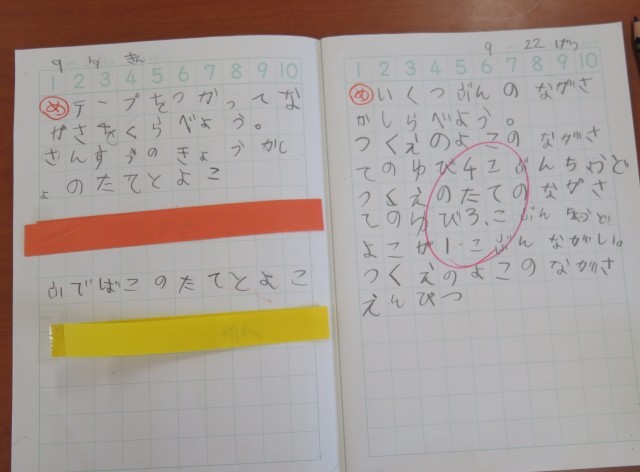 9 19 きん
1 2 3 4 5 6 7 8 9 10
め テープをつかってな
がさをくらべよう。
さんすうのきょうかし
ょのたてとよこ
ふでばこのたてとよこ
9 22 げつ
1 2 3 4 5 6 7 8 9 10
め いくつぶんのながさ
かしらべよう。
つくえのよこのながさ
てのゆび4こぶんちょうど
つくえのたてのながさ
てのゆび3、こぶんちょうど
よこが1こぶんながい。
つくえのよこのながさ
えんぴつ